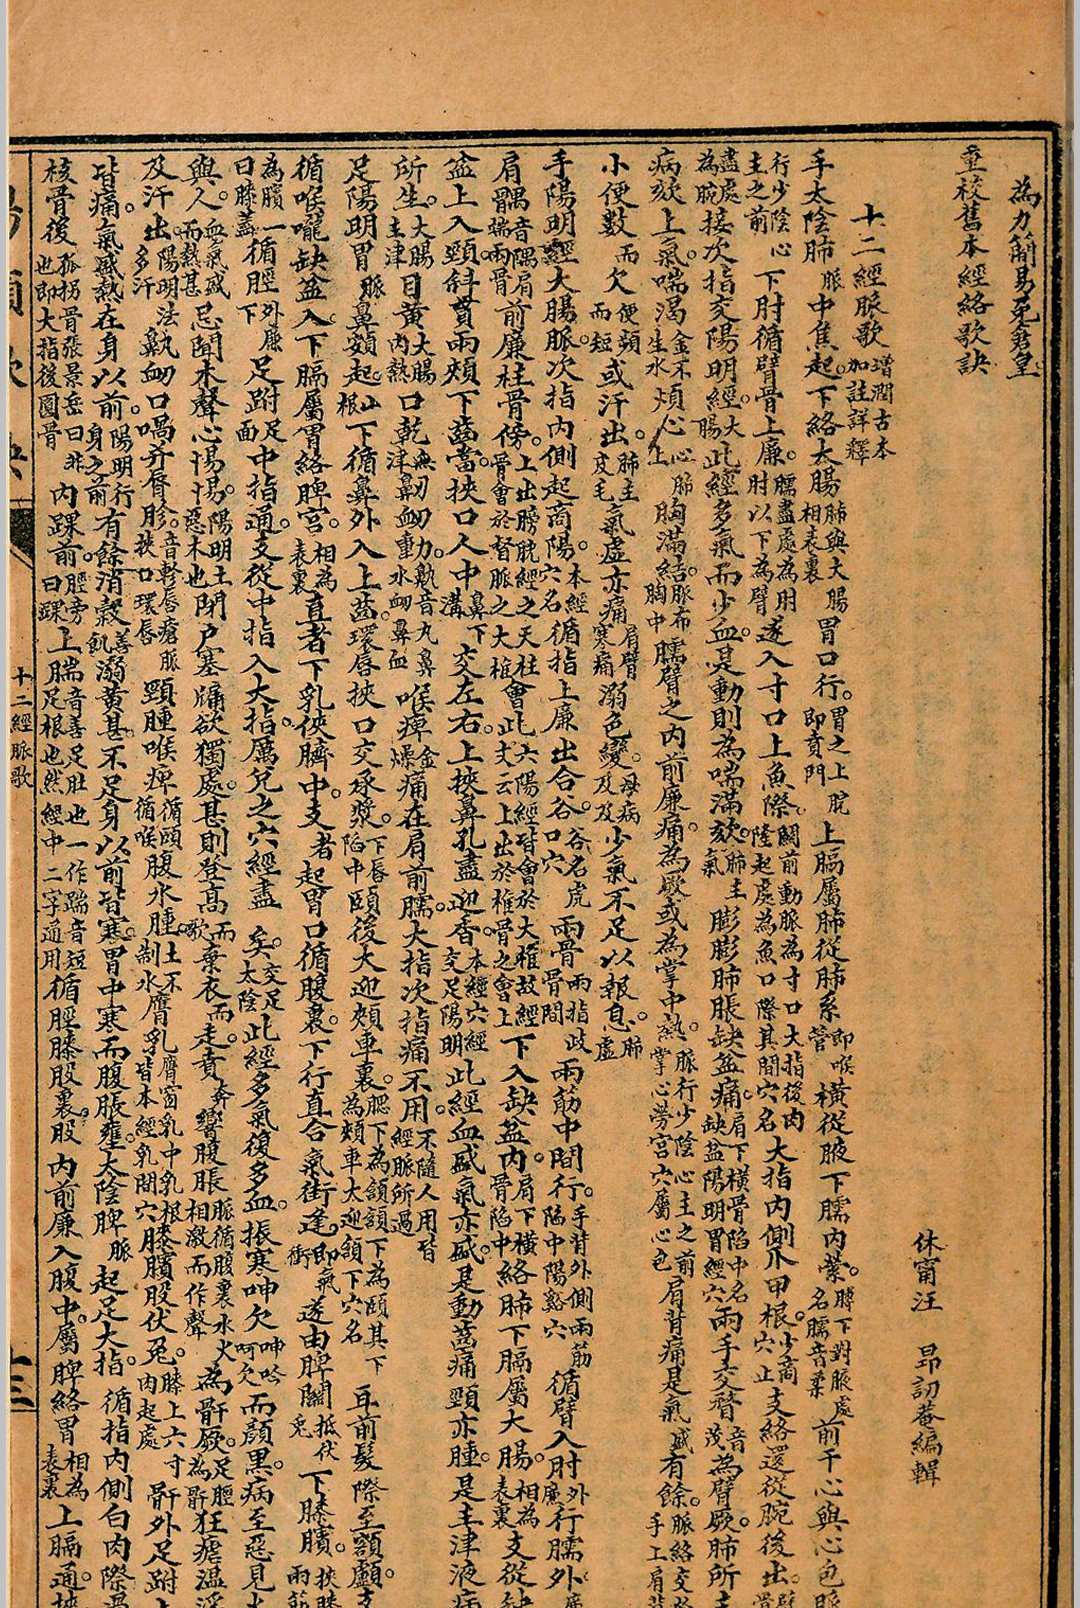 為力簡易免
重校舊本經絡歌訣
休甯汪 昂訒菴編輯
十二經脈歌 增潤古本加註詳釋
手太陰肺脈中焦起。下絡大腸肺與大腸相表裏胃口行。胃之上脘即賁門上膈屬肺從肺系即喉管橫從腋下臑內縈。膊下對腋處名臑音柔前于心與心包脈
行少陰心主之前下肘循臂骨上廉。臑盡處為肘肘以下為臂遂入寸口上魚際。關前動脈為寸口大指後肉隆起處為魚口際其間穴名大指內側爪甲根。少商穴止支絡還從腕後出。
盡處為腕接次指交陽明經。大腸此經多氣而少血。是動則為喘滿欬。肺主氣膨膨肺脹缺盆痛。肩下橫骨陷中名缺盆陽明胃經穴兩手交瞀音茂為臂厥。肺所
病欬上氣。喘渴金不生水煩心心上肺胸滿結。脈布胸中臑臂之內前廉痛。為厥或為掌中熱。脈行少陰心主之前掌心勞宮穴屬心包肩背痛是氣盛有餘。脈絡交於手上肩背
小便數而欠便頻而短或汗出。肺主皮毛氣虛亦痛肩臂寒痛溺色變。母病及及少氣不足以報息。肺虛
手陽明經大腸脈。次指內側起商陽。本經穴名循指上廉出合谷。谷名虎口穴兩骨兩指歧骨間兩筋中間行。手背外側兩筋陷中陽谿穴循臂入肘外廉行臑外
肩髃音隅肩端兩骨前廉柱骨傍。上出膀胱經之天柱骨會於督脈之大椎會此六陽經皆會於大椎故經文云上出於椎骨之會上下入缺盆內。肩下橫骨陷中絡肺下膈屬大腸。相為表裏支從缺
盆上入頸。斜貫兩頰下齒當。挾口人中鼻下溝交左右。上挾鼻孔盡迎香。本經穴經交足陽明此經血盛氣亦盛。是動齒痛頸亦腫。是主津液病
所生。大腸主津目黃大腸內熱口乾無津鼻衄衄音丸鼻水衄鼻血喉痺金燥痛在肩前臑。大指次指痛不用。不隨人用皆經脈所過
足陽明胃脈鼻頞起。山根下循鼻外入上齒。環唇挾口交承漿。下唇陷中頤後大迎頰車裏。腮下為頷頷下為頤其下為頰車大迎頷下穴名耳前髮際至額顱。支
循喉嚨缺盆入。下膈屬胃絡脾宮。相為表裏直者下乳俠臍中。支者起胃口循腹裏。下行直合氣街逢。即氣衝遂由髀關抵伏兔下膝臏。挾膝兩筋
為臏一曰膝蓋循脛下外廉足跗足面中指通。支從中指入大指。厲兌之穴經盡矣。交足太陰此經多氣復多血。振寒呻欠呻吟呵欠而顏黑。病至惡見
與人。血氣盛而熱甚忌聞木聲心惕惕。陽明土惡木也閉戶塞牖欲獨處。甚則登高而歌棄衣而走。賁奔響腹脹脈循腹裏水火相激而作聲為骭厥。足脛為骭狂瘧溫淫
及汗出。陽明法多汗鼽衄口喎并脣胗。音軫唇瘡脈挾口環唇頸腫喉痺循頤循喉腹水腫。土不制水膺乳膺窗乳中乳根皆本經乳間穴膝臏股伏兔。膝上六寸肉起處骭外足跗上
皆痛。氣盛熱在身以前。陽明行身之前有餘消穀善飢溺黃甚。不足身以前皆寒。胃中寒而腹脹壅。太陰脾脈起足大指。循指內側白肉際過
核骨後孤拐骨張景岳曰非也即大指後圓骨內踝前。脛旁曰踝上腨音善足肚也一作踹音短足根也然經中二字通用循脛膝股裏。股內前廉入腹中。屬脾絡胃相為表裏上膈通。挾
十二經脈歌